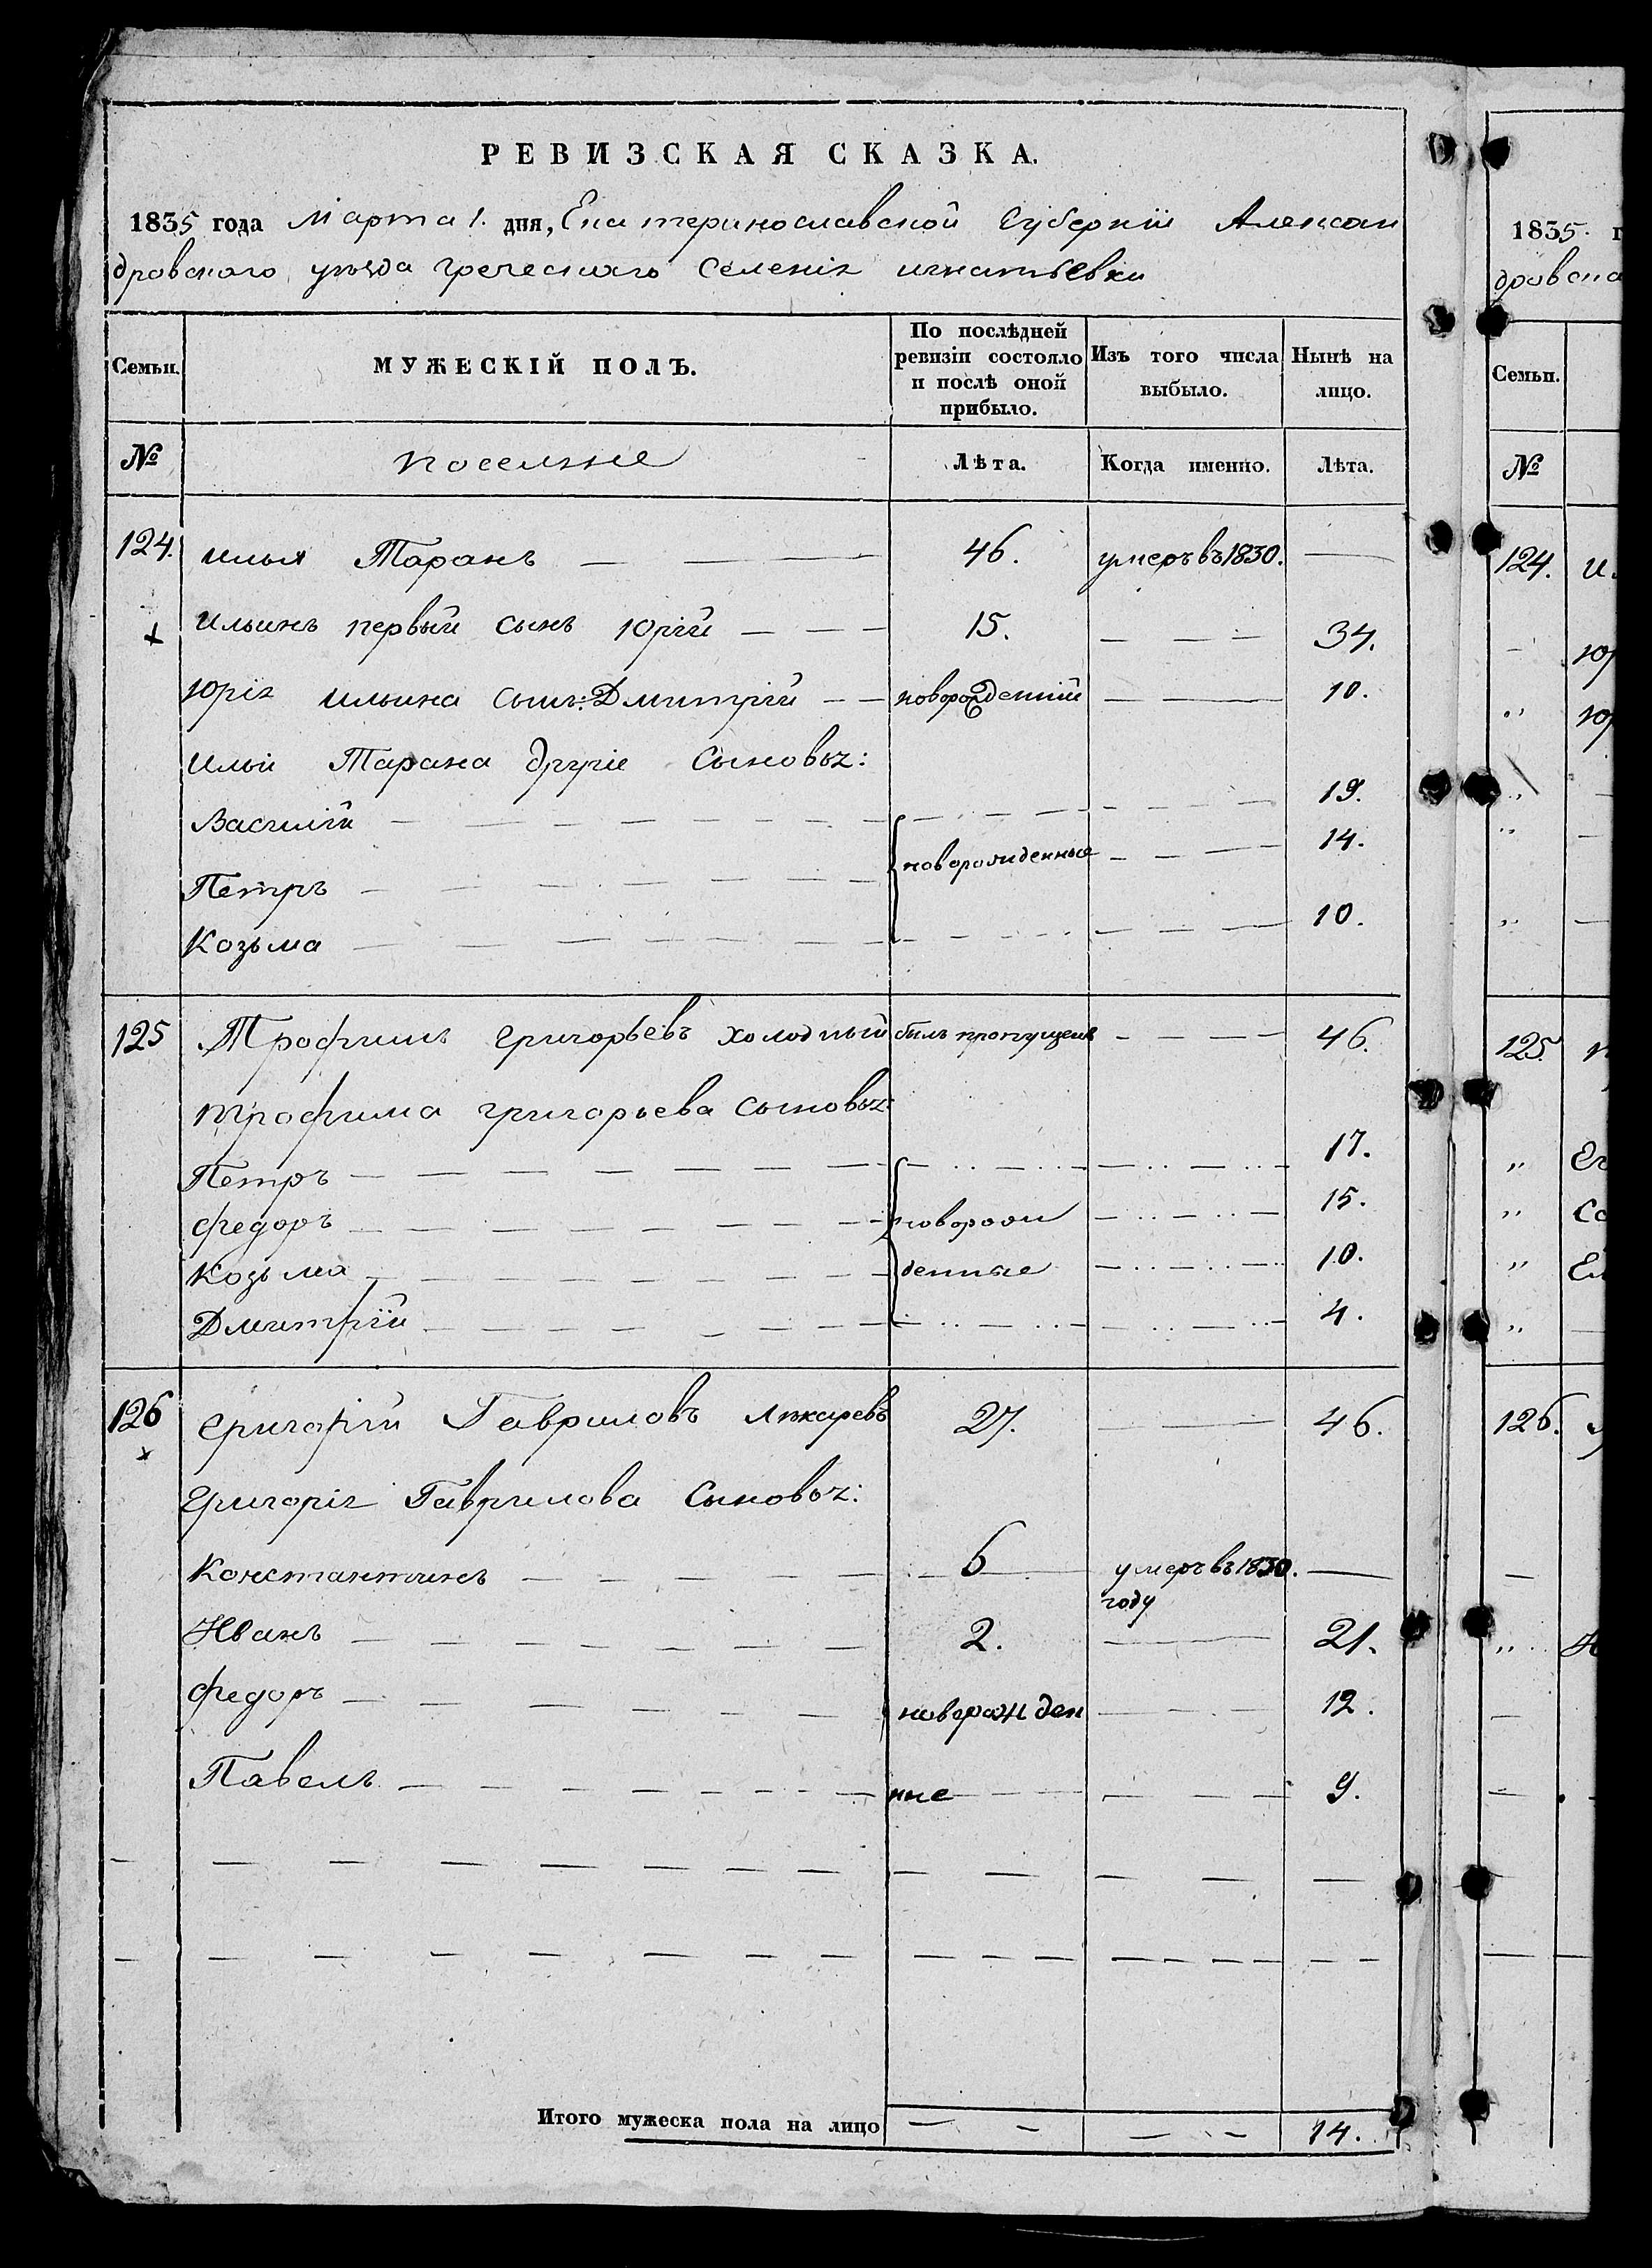 РЕВИЗСКАЯ СКАЗКА.
1835 года Марта 1. дня, Екатеринославской Губерніи Алексан
дровскаго уѣзда греческаго Селенія игнатьевки
Семьи. МУЖЕСКІЙ ПОЛЪ. По послѣдней ревизіи состояло и послѣ оной прибыло. Изъ того числа выбыло. Нынѣ на лицо.
№ Лѣта. Когда именно. Лѣта.
124. илья Таранъ 46. умеръ въ 1830.
+ ильинъ первый сынъ Юрій 15. 34.
Юрія ильина сынъ: Дмитрій новорожденній 10.
ильи Тарана другіе Сыновья:
Василій 19.
новорожденные
Петръ 14.
Козьма 10.
125 Трофимъ григорьевъ холодный былъ пропущенъ 46.
трофима григорьева сыновья:
Петръ 17.
федоръ новорож 15.
Козьма денные 10.
Дмитрій 4.
126 григорій Гавриловъ 27. 46.
x
григорія Гаврилова Сыновья:
Константинъ 6 умеръ въ 1830.
году
Иванъ 2. 21.
федоръ новорожден 12.
Павелъ ные 9.
Итого мужеска пола на лицо 14.
1835. г
дровска
Семьи.
№
124. и
юр
юр
125.
Ег
Со
126.